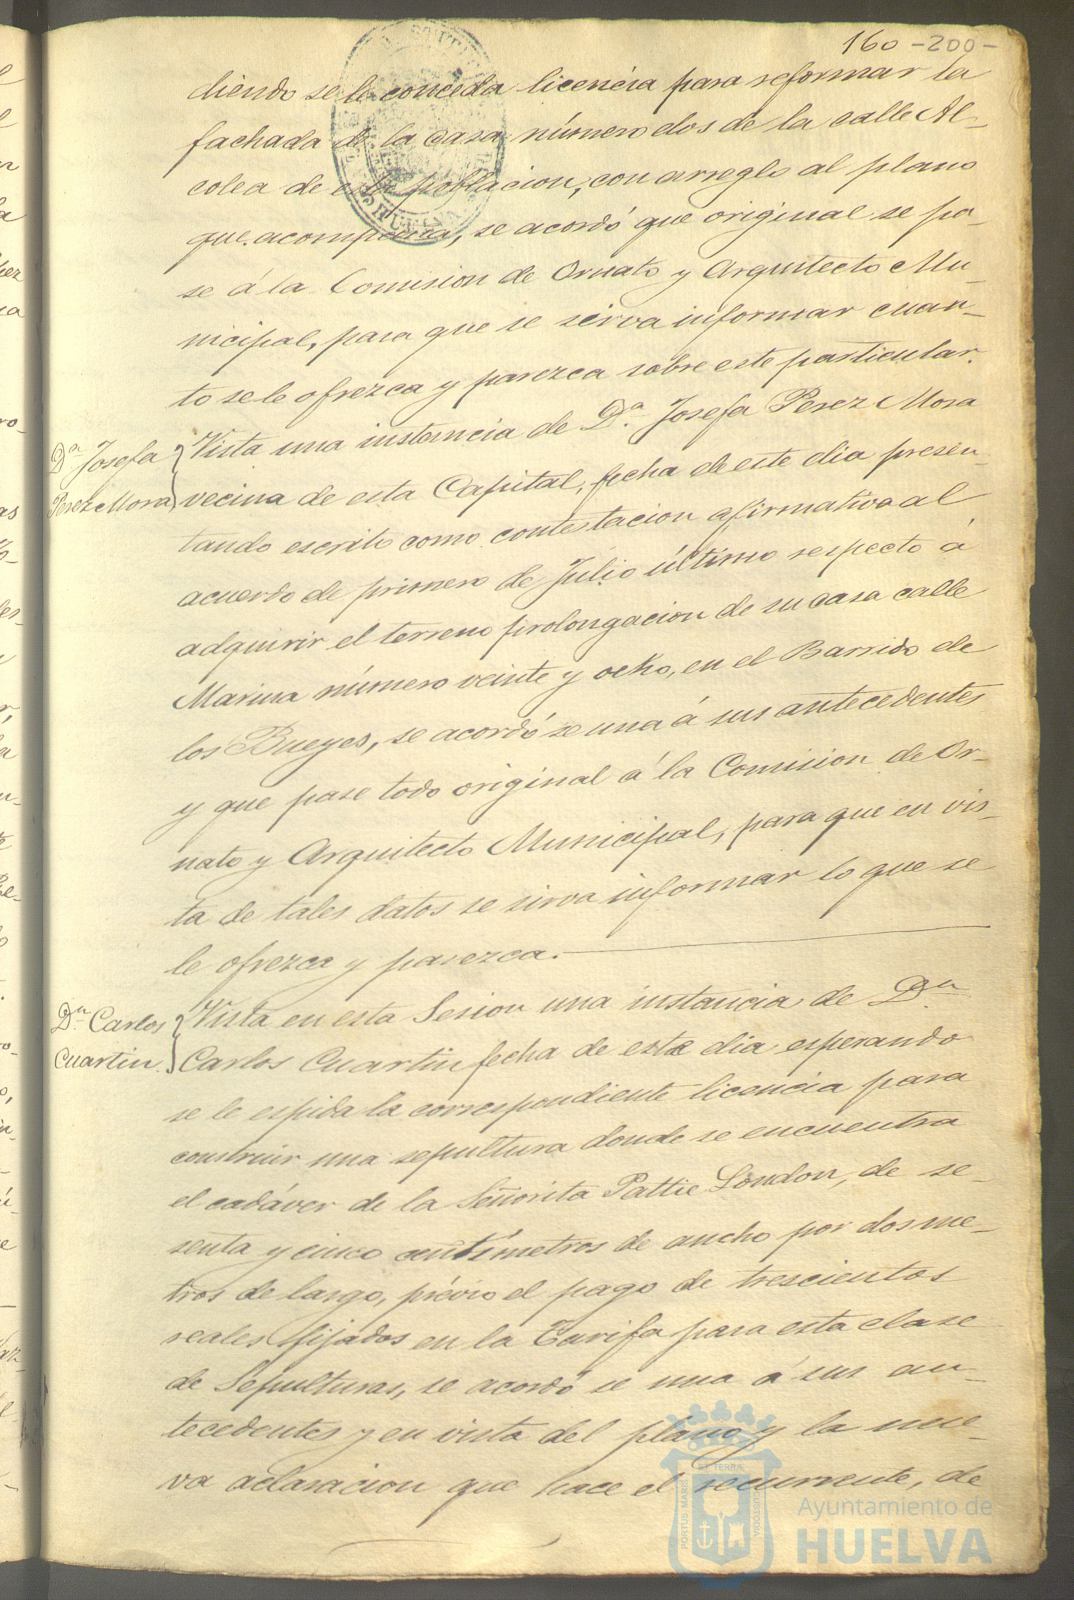 160 -200-
diendo se le conceda licencia para reformar la
fachada de la casa número dos de la calle Al-
colea de esta poblacion, con arreglo al plano
que acompaña, se acordó que original se pa-
se á la Comision de Ornato y Arquitecto Mu-
nicipal, para que se sirva informar cuan-
to se le ofrezca y parezca sobre este particular.
Dª Josefa
Perez Mora
Vista una instancia de Dª Josefa Perez Mora
vecina de esta Capital, fecha de este dia presen-
tando escrito como contestacion afirmativa al
acuerdo de primero de Júlio último respecto á
adquirir el terreno prolongacion de su casa calle
Marina número veinte y ocho, en el Barrido de
los Bueyes, se acordó se una á sus antecedentes
y que pase todo original á la Comision de Or-
nato y Arquitecto Municipal, para que en vis-
ta de tales datos se sirva informar lo que se
le ofrezca y parezca.
Dn Carlos
Cuartin.
Vista en esta Sesion una instancia de Dn
Carlos Cuartin fecha de este dia esperando
se le espida la correspondiente licencia para
construir una sepultura donde se encuentra
el cadáver de la Señorita Pattie London, de se-
senta y cinco centímetros de ancho por dos me-
tros de largo, prévio el pago de trescientos
reales fijados en la Tarifa para esta clase
de Sepulturas, se acordó se una á sus an-
tecedentes y en vista del plano y la nue-
va aclaracion que hace el recurrente, de
HUELVA
PORTUS MARIS ET TERRÆ CUSTODIA
Ayuntamiento de
HUELVA